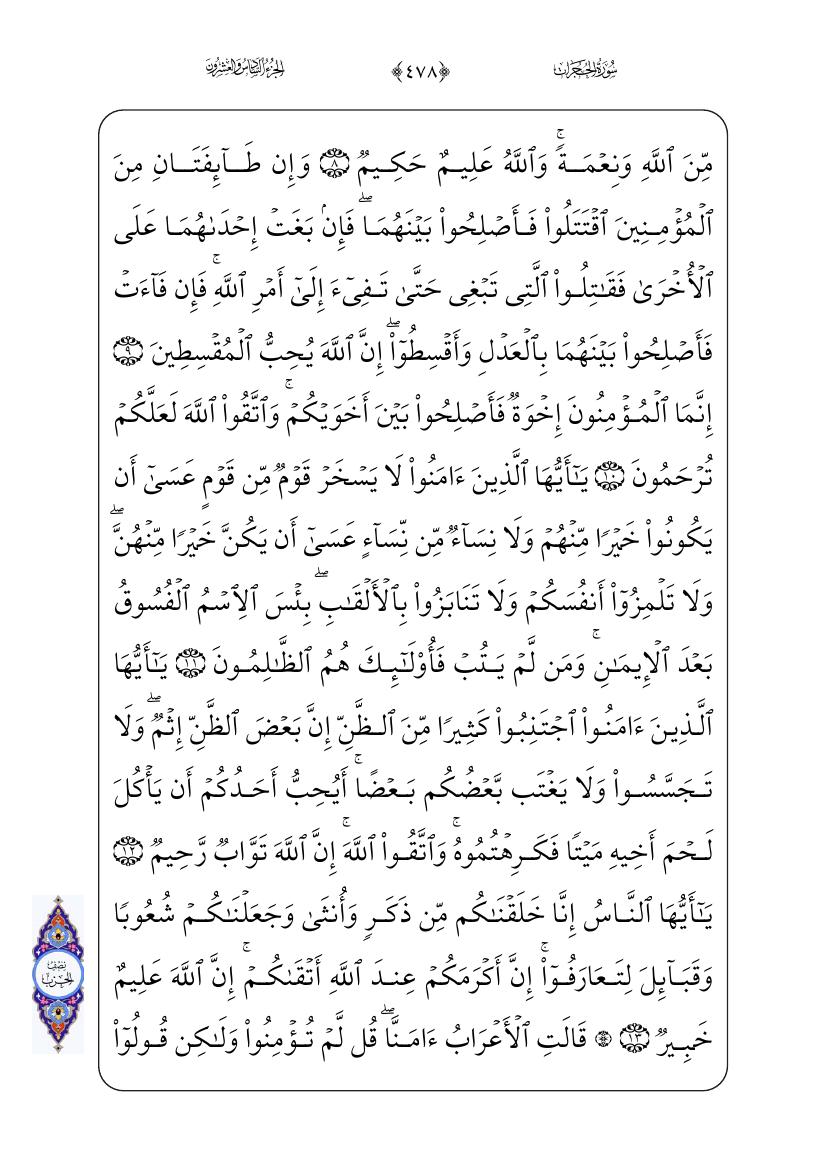 سُورَةُ الحُجُرَاتِ ﴿٤٧٨﴾ الجُزْءُ السَّادِسُ وَالعِشْرُونَ
مِّنَ ٱللَّهِ وَنِعۡمَةٗۚ وَٱللَّهُ عَلِيمٌ حَكِيمٞ ٨ وَإِن طَآئِفَتَانِ مِنَ
ٱلۡمُؤۡمِنِينَ ٱقۡتَتَلُواْ فَأَصۡلِحُواْ بَيۡنَهُمَاۖ فَإِنۢ بَغَتۡ إِحۡدَىٰهُمَا عَلَى
ٱلۡأُخۡرَىٰ فَقَٰتِلُواْ ٱلَّتِي تَبۡغِي حَتَّىٰ تَفِيٓءَ إِلَىٰٓ أَمۡرِ ٱللَّهِۚ فَإِن فَآءَتۡ
فَأَصۡلِحُواْ بَيۡنَهُمَا بِٱلۡعَدۡلِ وَأَقۡسِطُوٓاْۖ إِنَّ ٱللَّهَ يُحِبُّ ٱلۡمُقۡسِطِينَ ٩
إِنَّمَا ٱلۡمُؤۡمِنُونَ إِخۡوَةٞ فَأَصۡلِحُواْ بَيۡنَ أَخَوَيۡكُمۡۚ وَٱتَّقُواْ ٱللَّهَ لَعَلَّكُمۡ
تُرۡحَمُونَ ١٠ يَٰٓأَيُّهَا ٱلَّذِينَ ءَامَنُواْ لَا يَسۡخَرۡ قَوۡمٞ مِّن قَوۡمٍ عَسَىٰٓ أَن
يَكُونُواْ خَيۡرٗا مِّنۡهُمۡ وَلَا نِسَآءٞ مِّن نِّسَآءٍ عَسَىٰٓ أَن يَكُنَّ خَيۡرٗا مِّنۡهُنَّۖ
وَلَا تَلۡمِزُوٓاْ أَنفُسَكُمۡ وَلَا تَنَابَزُواْ بِٱلۡأَلۡقَٰبِۖ بِئۡسَ ٱلِٱسۡمُ ٱلۡفُسُوقُ
بَعۡدَ ٱلۡإِيمَٰنِۚ وَمَن لَّمۡ يَتُبۡ فَأُوْلَٰٓئِكَ هُمُ ٱلظَّٰلِمُونَ ١١ يَٰٓأَيُّهَا
ٱلَّذِينَ ءَامَنُواْ ٱجۡتَنِبُواْ كَثِيرٗا مِّنَ ٱلظَّنِّ إِنَّ بَعۡضَ ٱلظَّنِّ إِثۡمٞۖ وَلَا
تَجَسَّسُواْ وَلَا يَغۡتَب بَّعۡضُكُم بَعۡضًاۚ أَيُحِبُّ أَحَدُكُمۡ أَن يَأۡكُلَ
لَحۡمَ أَخِيهِ مَيۡتٗا فَكَرِهۡتُمُوهُۚ وَٱتَّقُواْ ٱللَّهَۚ إِنَّ ٱللَّهَ تَوَّابٞ رَّحِيمٞ ١٢
يَٰٓأَيُّهَا ٱلنَّاسُ إِنَّا خَلَقۡنَٰكُم مِّن ذَكَرٖ وَأُنثَىٰ وَجَعَلۡنَٰكُمۡ شُعُوبٗا
وَقَبَآئِلَ لِتَعَارَفُوٓاْۚ إِنَّ أَكۡرَمَكُمۡ عِندَ ٱللَّهِ أَتۡقَىٰكُمۡۚ إِنَّ ٱللَّهَ عَلِيمٌ
خَبِيرٞ ١٣ ۞ قَالَتِ ٱلۡأَعۡرَابُ ءَامَنَّاۖ قُل لَّمۡ تُؤۡمِنُواْ وَلَٰكِن قُولُوٓاْ
نِصْفُ
الحِزْبِ